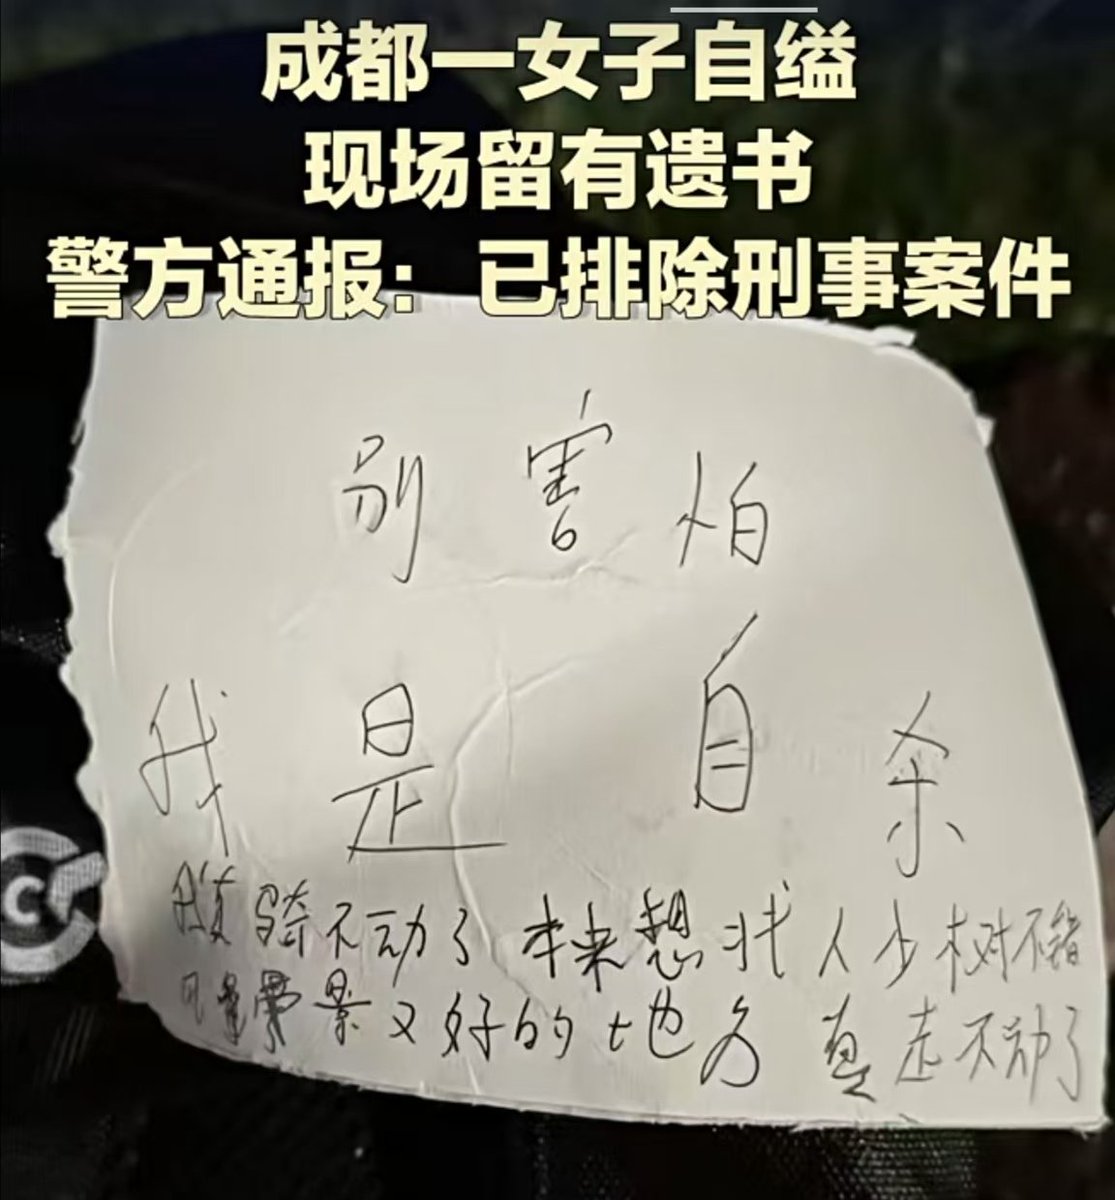 成都一女子自缢
现场留有遗书
警方通报：已排除刑事案件
别害怕
我是自杀
骑不动了 本来想找人少树不错
景又好的地方 真走不动了
C